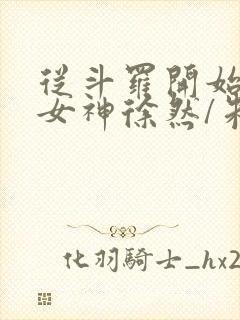 從斗羅開始
女神徐然/朱
化羽騎士_hx2